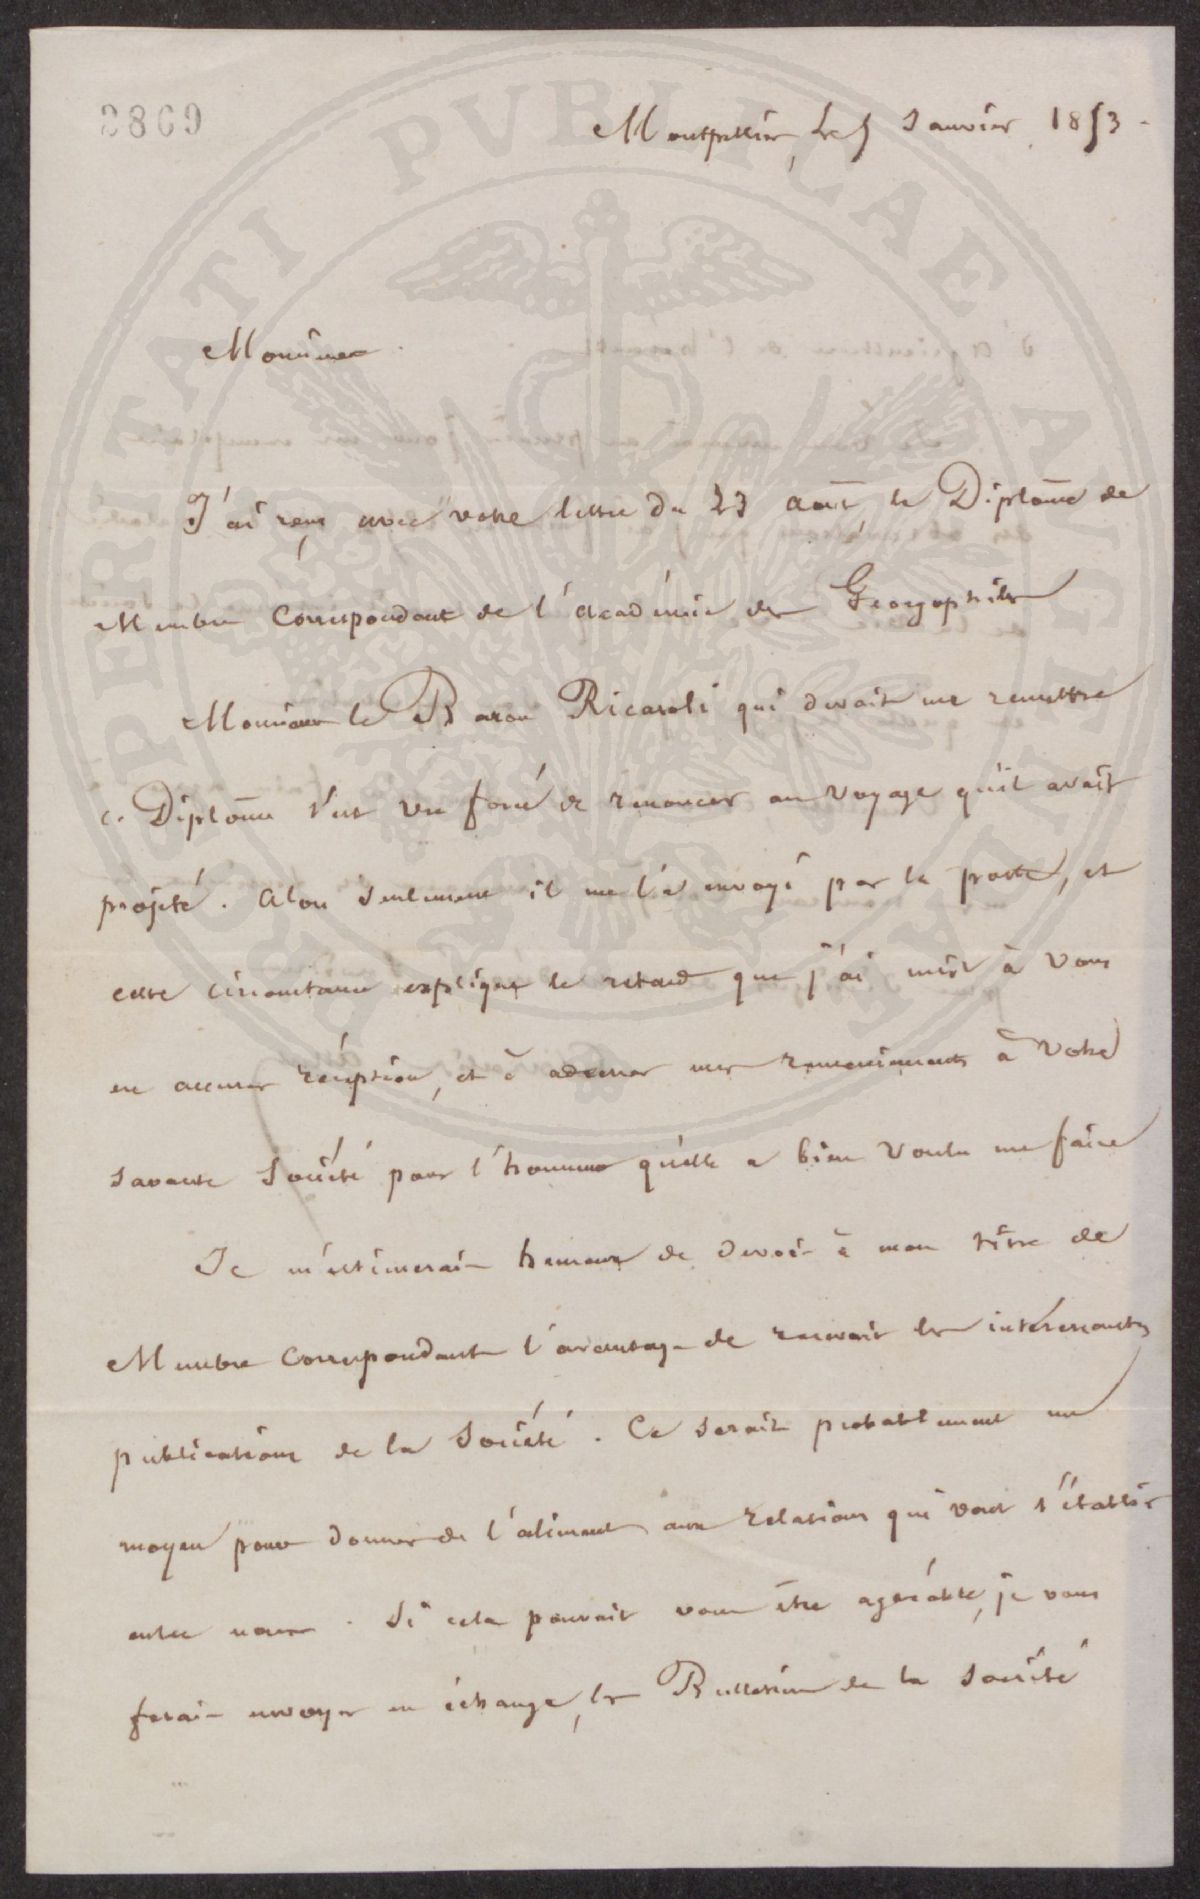 2869
Montpellier, le 5 Janvier 1853
Monsieur
J'ai reçu avec votre lettre du 23 août le Diplôme de
Membre Correspondant de l'Académie des Georgophiles
Monsieur le Baron Ricasoli qui devait me remettre
ce Diplôme s'est vu forcé de renoncer au voyage qu'il avait
projeté. Alors seulement il me l'a envoyé par la poste, et
cette circonstance explique le retard que j'ai mis à vous
en accuser réception, et à adresser mes remerciements à votre
savante Société pour l'honneur qu'elle a bien voulu me faire
Je m'estimerais heureux de devoir à mon titre de
Membre Correspondant l'avantage de recevoir les intéressantes
publications de la Société. Ce serait probablement un
moyen pour donner de l'aliment aux relations qui vont s'établir
entre nous. Si cela pouvait vous être agréable, je vous
ferais envoyer en échange, les Bulletins de la Société
PROSPERITATI PVBLICAE AVGENDAE